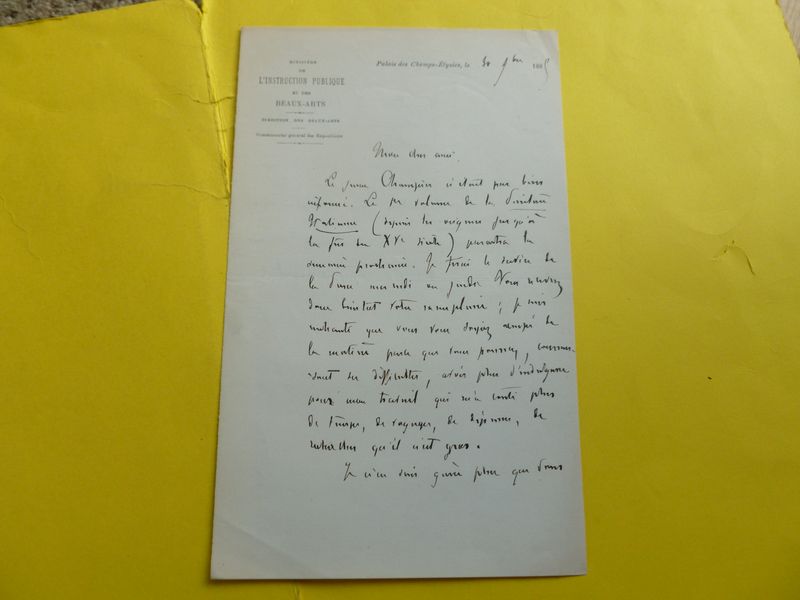 MINISTÈRE
DE
L'INSTRUCTION PUBLIQUE
ET DES
BEAUX-ARTS
DIRECTION DES BEAUX-ARTS
Commissariat général des Expositions
Palais des Champs-Élysées, le 30 9bre 188
Mon cher ami,
Le jeune Champier n'était pas bien
informé. Le 1er volume de la Peinture
Italienne (depuis les origines jusqu'à
la fin du XVe siècle) paraîtra la
semaine prochaine. Je ferai le service de
la Presse mardi ou jeudi. Vous aurez
donc bientôt votre exemplaire ; je suis
enchanté que vous vous soyez occupé de
la matière parce que vous pourrez, connais-
sant les difficultés, avoir plus d'indulgence
pour mon travail qui m'a coûté plus
de temps, de voyages, de dépenses, de
recherches qu'il n'est gros.
Je n'en suis guère plus que vous